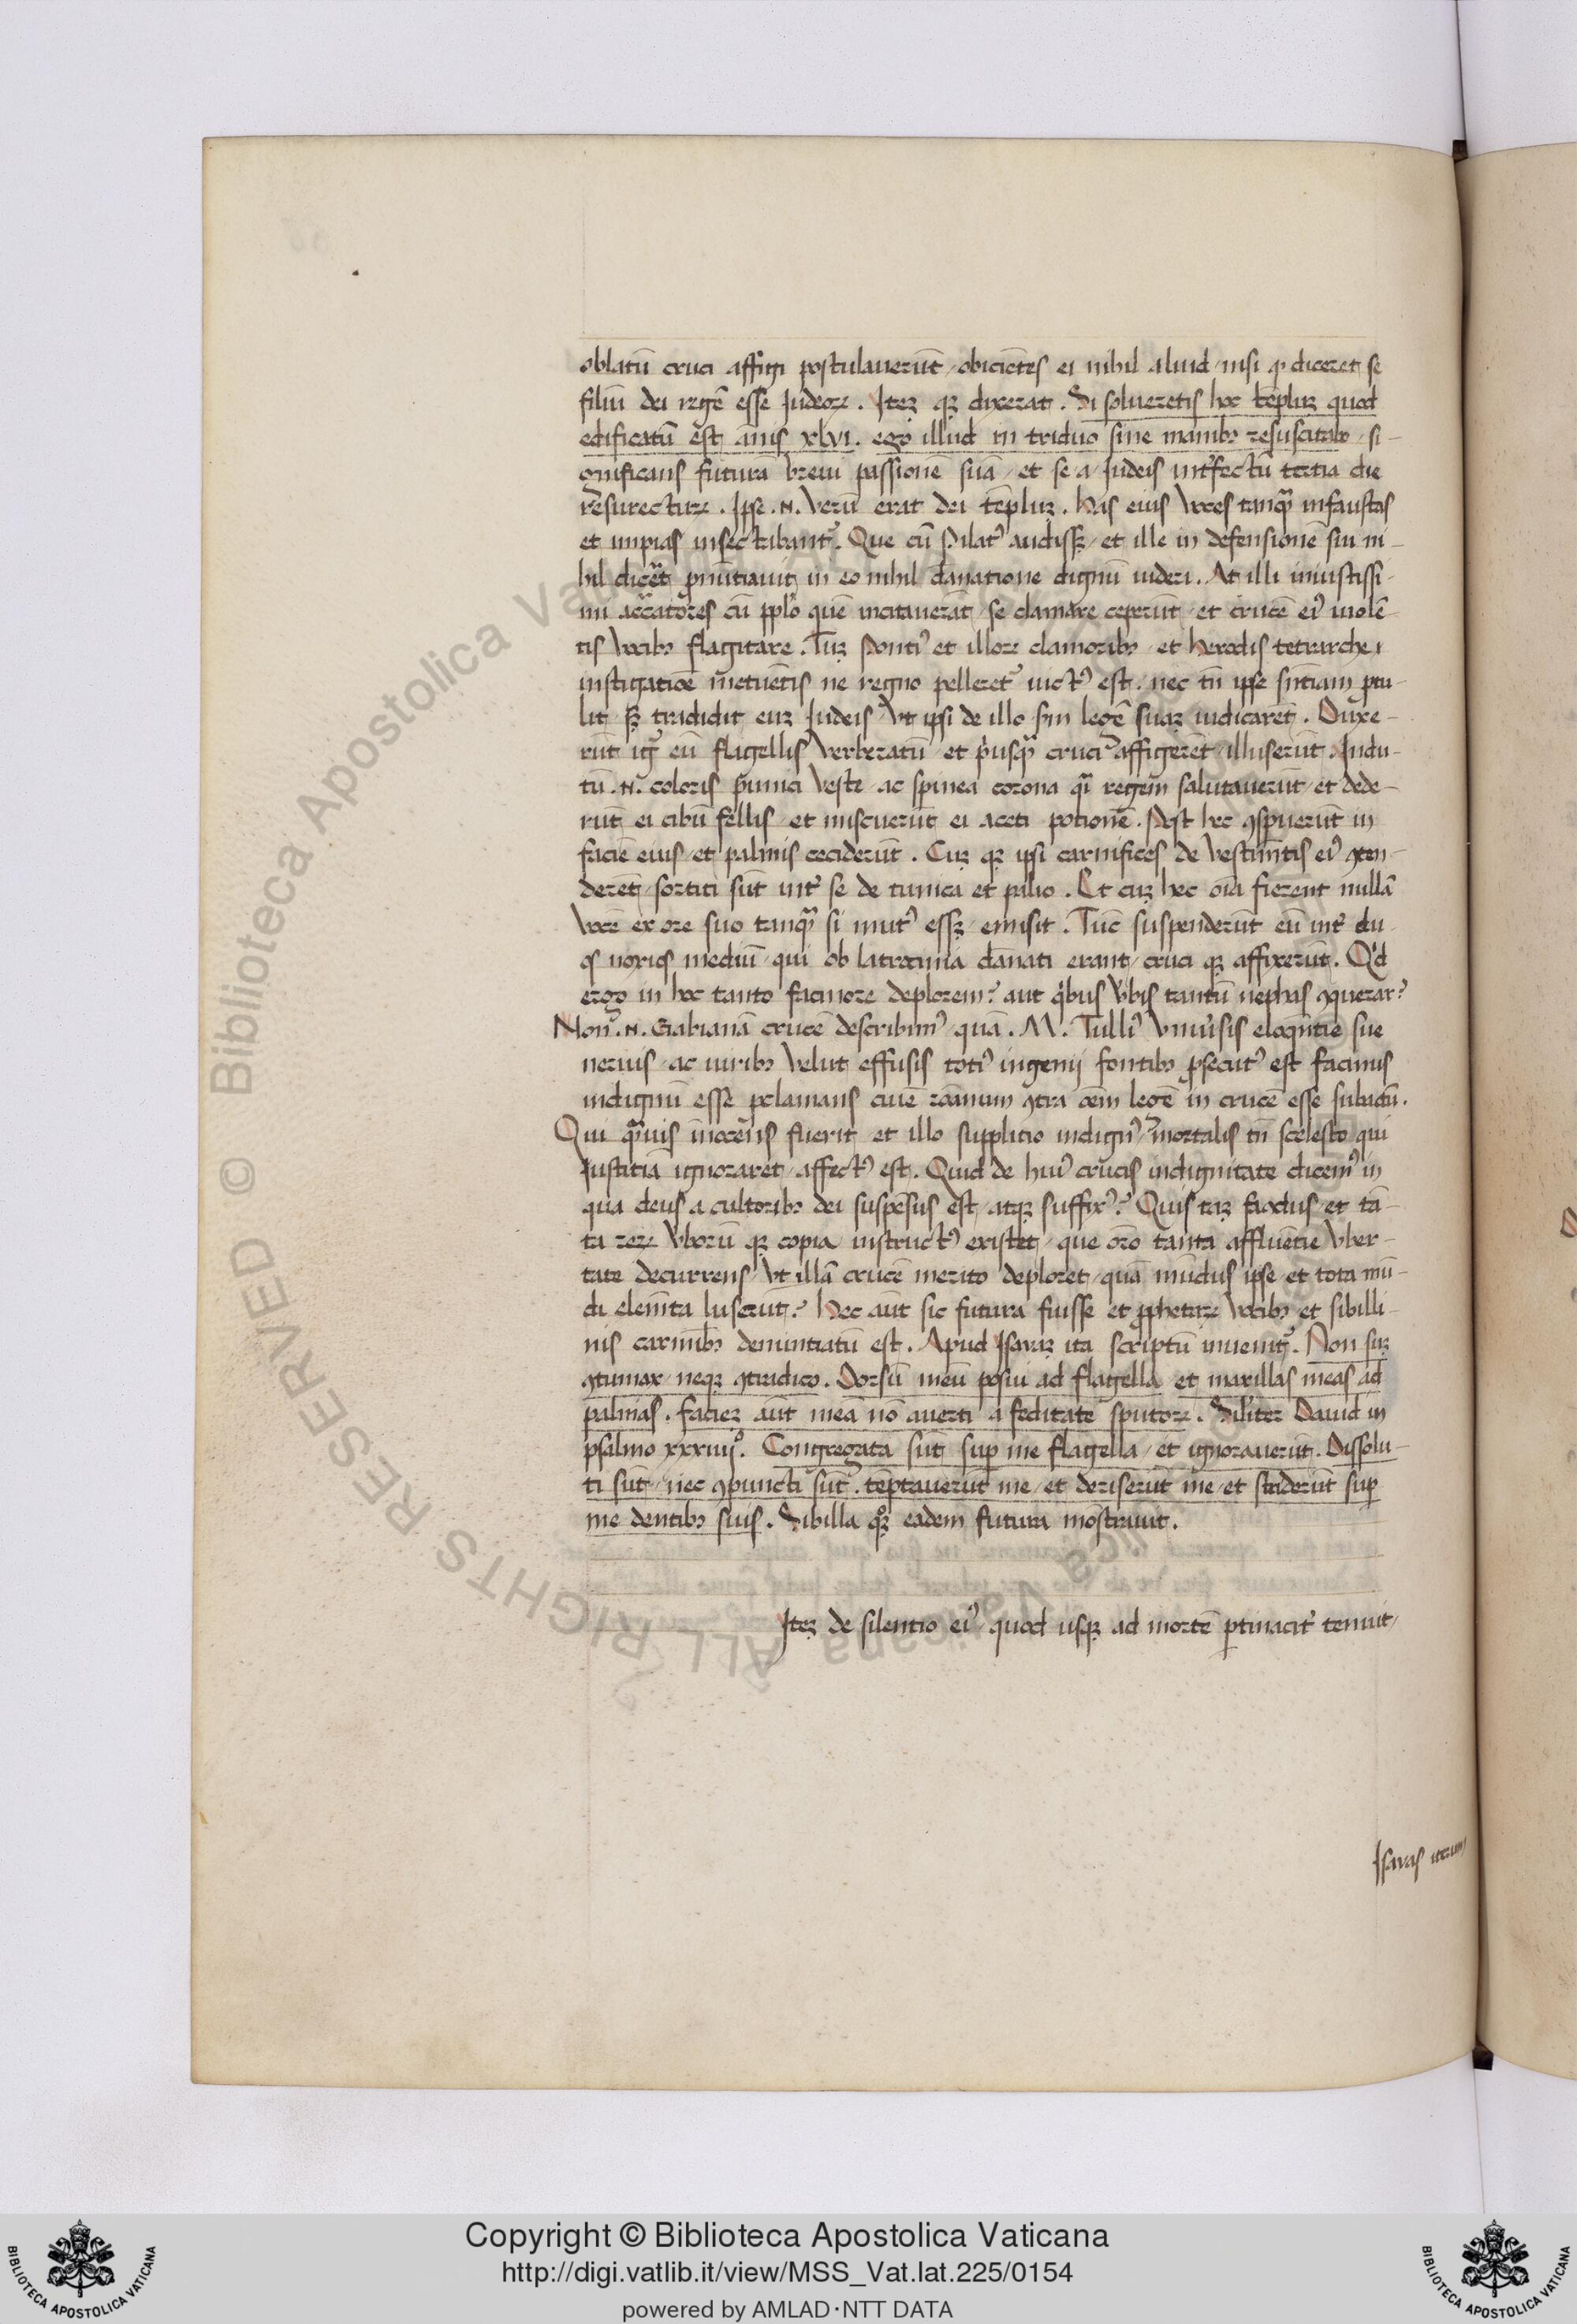 oblatū cruci affigi postulauerūt / obiciētes ei nihil aliud / nisi ꝙ diceret se
filiū dei regē esse Iudeoꝝ . Iteꝫ qꝫ dixerat . Si solueretis hoc tēpluꝫ quod
edificatū est ānis xlvi . ego illud in triduo sine manibꝰ resuscitabo / si-
gnificans futurā breui passionē suā / et se a Iudeis int̓fectū tertia die
resurecturꝫ . Ipse .N. Verū erat dei tēpluꝫ . Has eius voces tanqᷓ infaustas
et impias insectabant᷑ . Que cū Pilatꝰ audissꝫ / et ille in defensionē sui ni-
hil dicēt / ꝓnūtiauit in eo nihil dānatione dignū uideri . At illi iniustissi-
mi accᷓatores cū pplo quē incitauerāt / se clamare ceperūt / et crucē eiꝰ uiolē-
tis vocibꝰ flagitare . Tūꝫ Pontiꝰ et illoꝝ clamoribꝰ / et Herodis tetrarche
instigatiōe metuētis ne regno pelleret᷑ uictꝰ est . nec tn̄ ipse sn̄tiam ptu-
lit sꝫ tradidit euꝫ Iudeis / vt ipsi de illo scd̄m legē suaꝫ iudicarēt . Duxe-
rūt igr̄ eū flagellis verberatū / et p̓usqᷓ cruci affigerēt / illuserūt . Indu-
tū .N. coloris punici veste / ac spinea corona qᷓi regem salutauerūt / et dede-
rūt ei cibū fellis / et miscuerūt ei aceti potionē . Post hec ꝯspuerūt in
faciē eius / et palmis ceciderūt . Cuꝫ qꝫ ipsi carnifices de vestimētis eiꝰ ꝯten-
derēt / sortiti sūt int̓ se de tunica et palio . Et cuꝫ hec oīa fierent nullā
vocē ex ore suo tanqᷓ si mutꝰ essꝫ / emisit . Tūc suspenderūt eū int̓ du-
os noxios mediū / qui ob latrocinia dānati erant / cruci qꝫ affixerūt . Qͥd
ergo in hoc tanto facinore deplorem ? aut qͥbus v̓bis tantū nephas ꝯquerar ?
Non .N. Gabianā crucē describimꝰ quā .M. Tulliꝰ vniu̓sis eloqn̄tie sue
neruis / ac uiribꝰ velut effusis totiꝰ ingenij fontibꝰ ꝑsecutꝰ est facinus
indignū esse ꝓclamans ciue romanum ꝯtra oēm legē in crucē esse sublatū .
Qui qᷓuis inocens fuerit / et illo supplitio indignꝰ / mortalis tn̄ scelesto qui
Iustitiā ignoraret / affectꝰ est . Quid de huiꝰ crucis indignitate dicemꝰ in
qua deus a cultoribꝰ dei suspēsus est / atqꝫ suffixꝰ ? Quis taꝫ facūdus / et tā-
ta reꝝ v̓borū qꝫ copia / instructꝰ existet / que oro tanta affluētie vber-
tate decurrens / vt illā crucē merito deploret / quā mūdus ipse / et tota mū-
di elem̄ta luserūt ? Hec aūt sic futura fuisse et ꝓphetaꝝ vocibꝰ et sibilli-
nis carmībꝰ denuntiatū est . Apud Isaiaꝫ ita scriptū inuenit᷑ . Non suꝫ
ꝯtumax / neqꝫ ꝯtradico . Dorsū meū posui ad flagella et maxillas meas ad
palmas . facieꝫ aūt meā nō auerti a feditate sputoꝝ . Silꝰiter Dauid in
psalmo xxxiiijº . Congregata sūt suꝑ me flagella / et ignorauerūt . Dissolu-
ti sūt / nec ꝯpuncti sūt . tēptauerūt me / et deriserūt me / et striderūt suꝑ
me dentibꝰ suis . Sibilla qꝫ eadem futura mōstrauit .
Iteꝫ de silentio eiꝰ / quod usqꝫ ad mortē ꝑtinacit̓ tenuit /
Isaias iterum
Copyright © Biblioteca Apostolica Vaticana
http://digi.vatlib.it/view/MSS_Vat.lat.225/0154
powered by AMLAD·NTT DATA
BIBLIOTECA APOSTOLICA VATICANA
BIBLIOTECA APOSTOLICA VATICANA